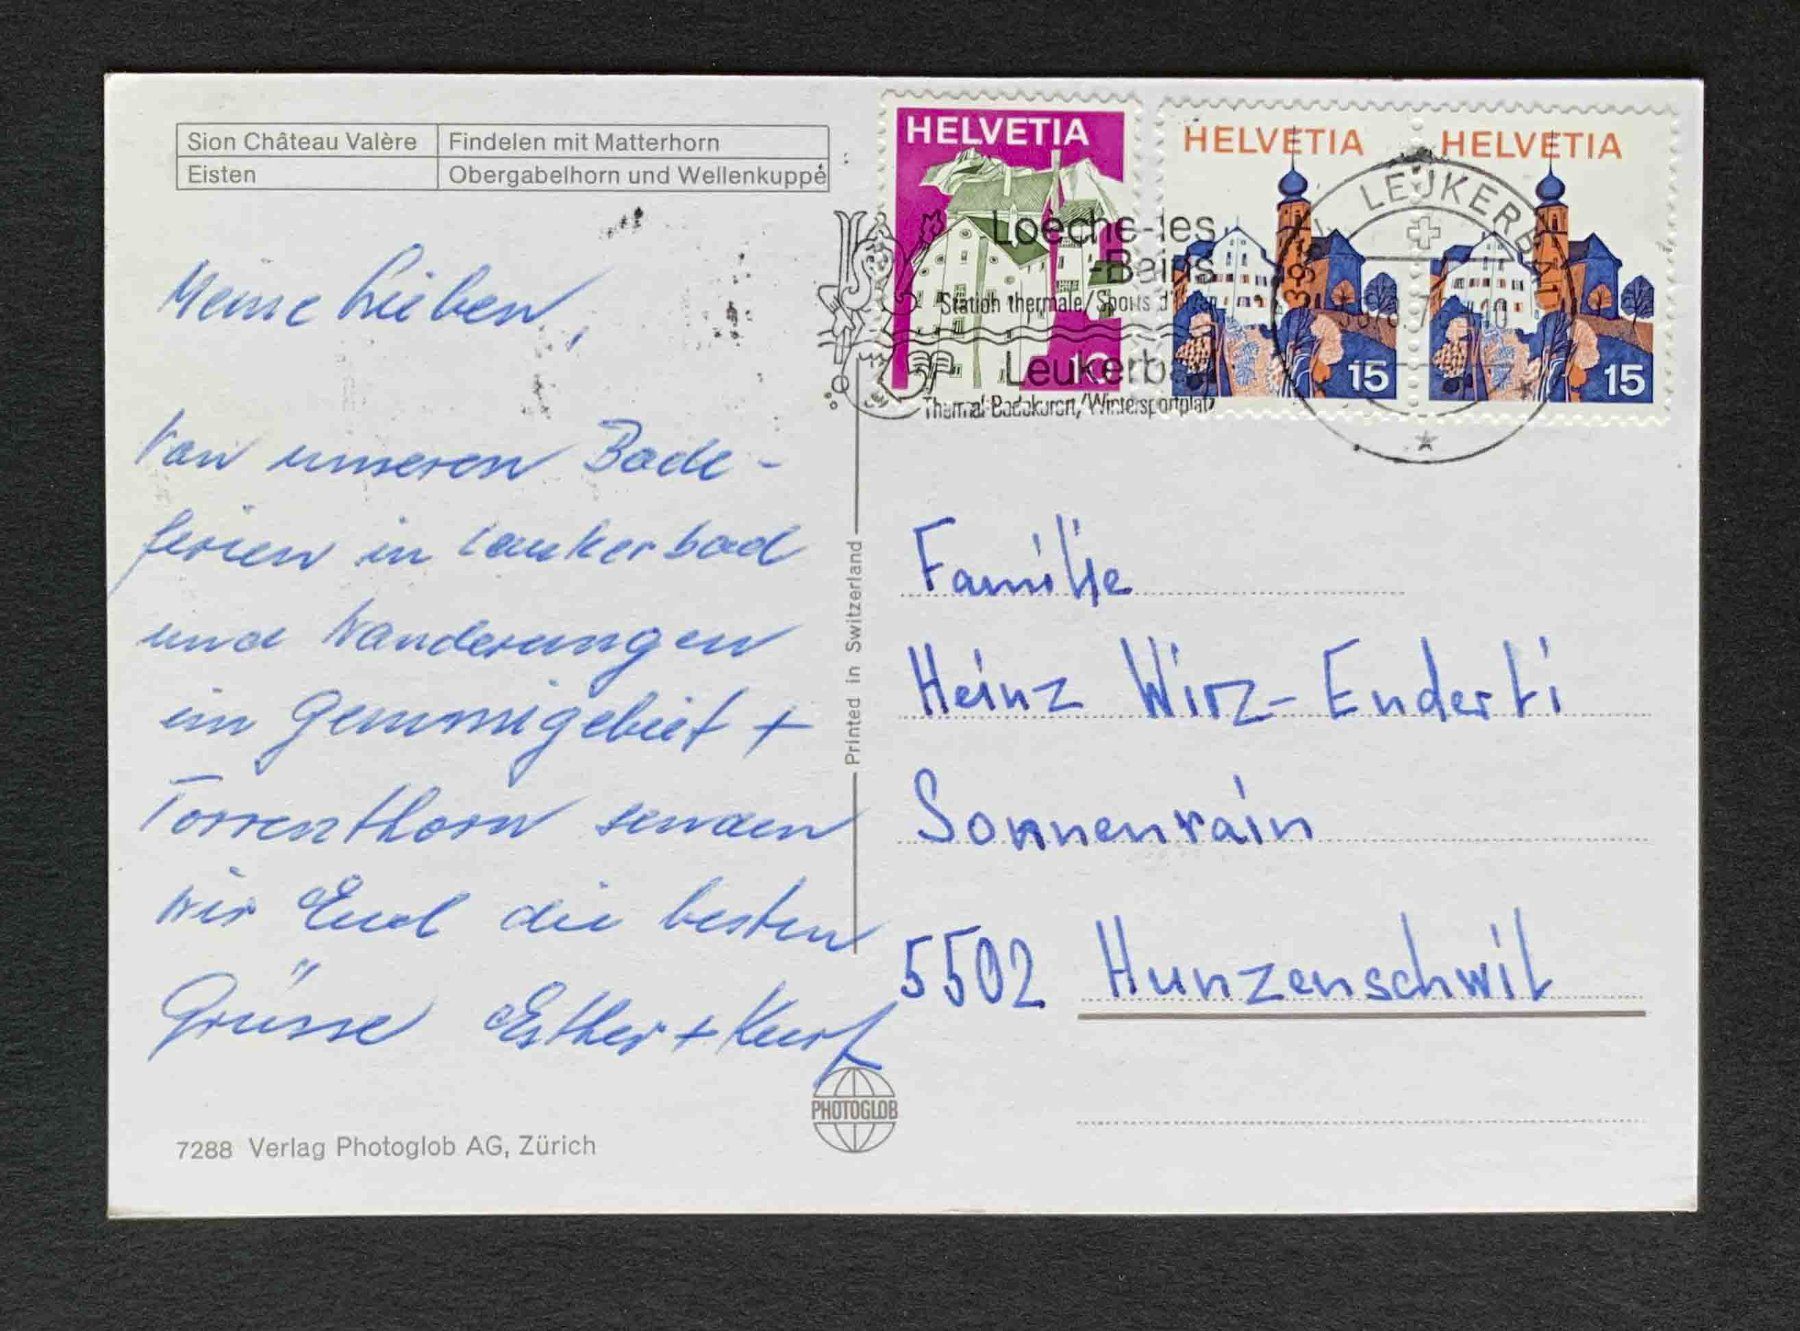 Sion Château Valère
Findelen mit Matterhorn
Eisten
Obergabelhorn und Wellenkuppe
Meine Lieben,
Von unseren Bade-
ferien in Leukerbad
und Wanderungen
im Gemmigebiet +
Torrenthorn senden
wir Euch die besten
Grüsse Esther + Kurt
7288 Verlag Photoglob AG, Zürich
Printed in Switzerland
PHOTOGLOB
HELVETIA
10
HELVETIA
15
HELVETIA
15
Loèche-les
-Bains
Station thermale/Sports
Leukerbad
Thermal-Badekurort/Wintersportplatz
LEUKERBAD
Familie
Heinz Wirz-Enderli
Sonnenrain
5502 Hunzenschwil